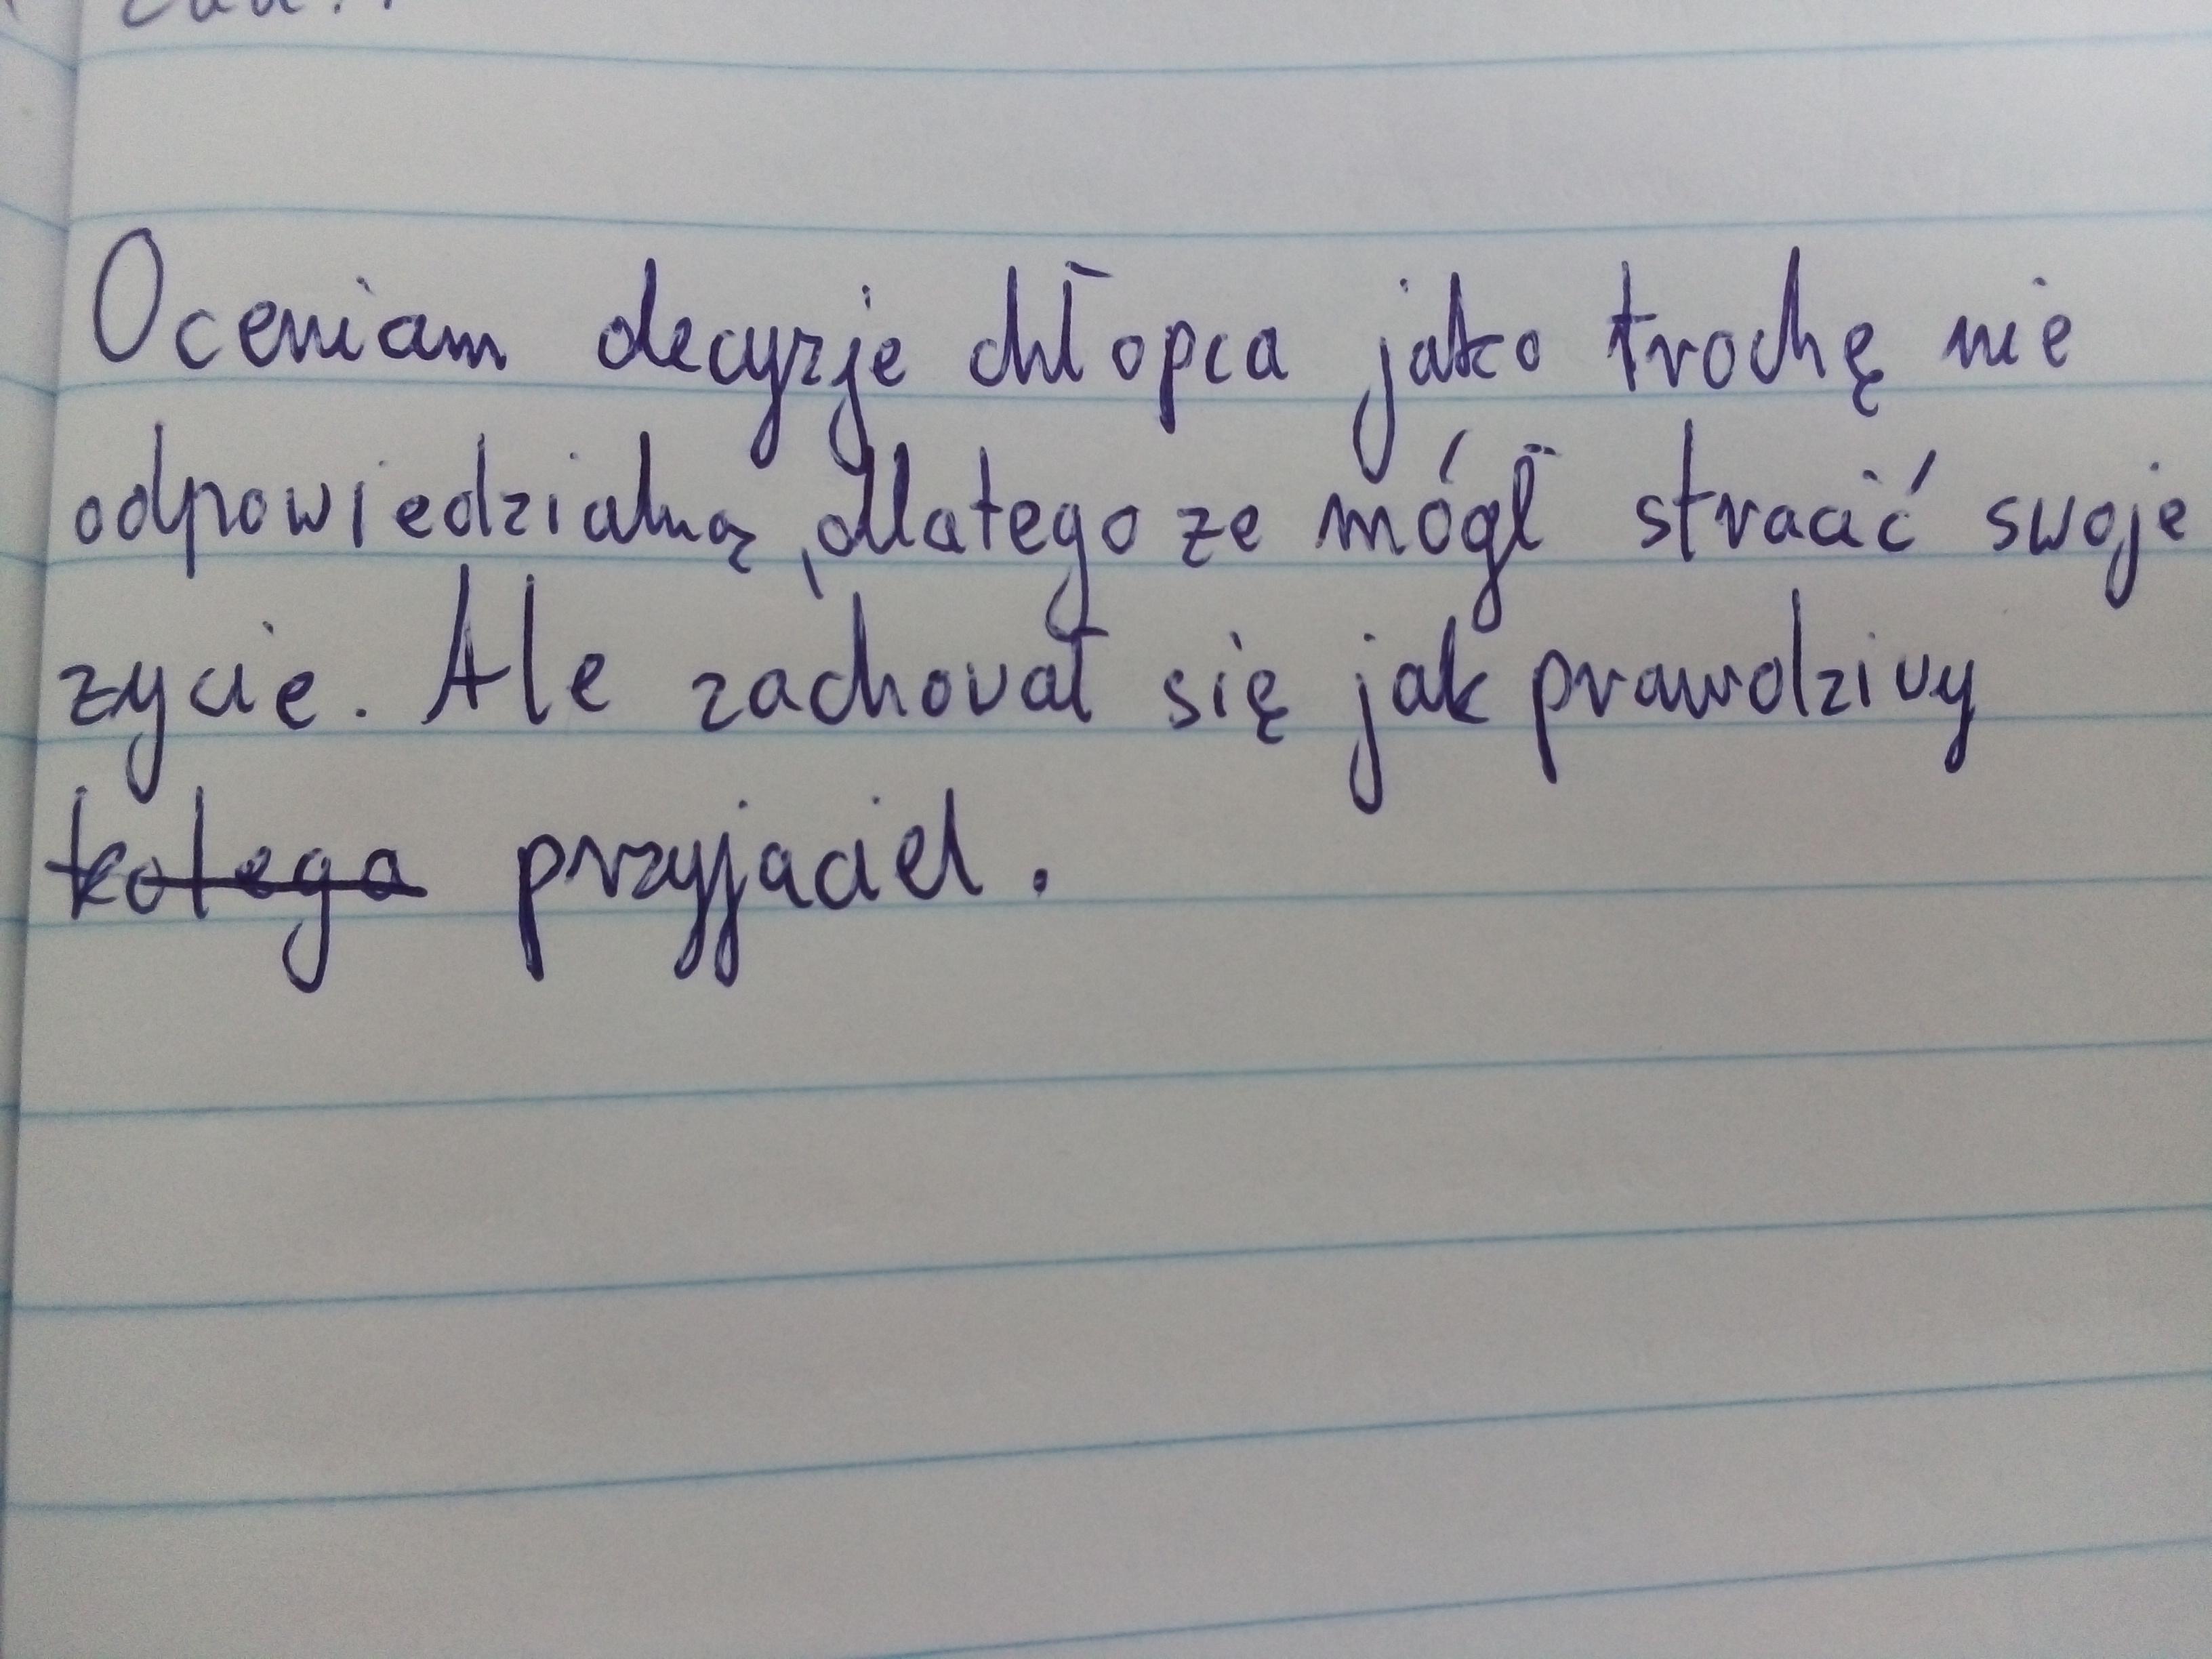 Oceniam decyzje chłopca jako trochę nie
odpowiedzialną, dlatego ze mógł stracić swoje
zycie. Ale zachował się jak prawdziwy
kolega przyjaciel.